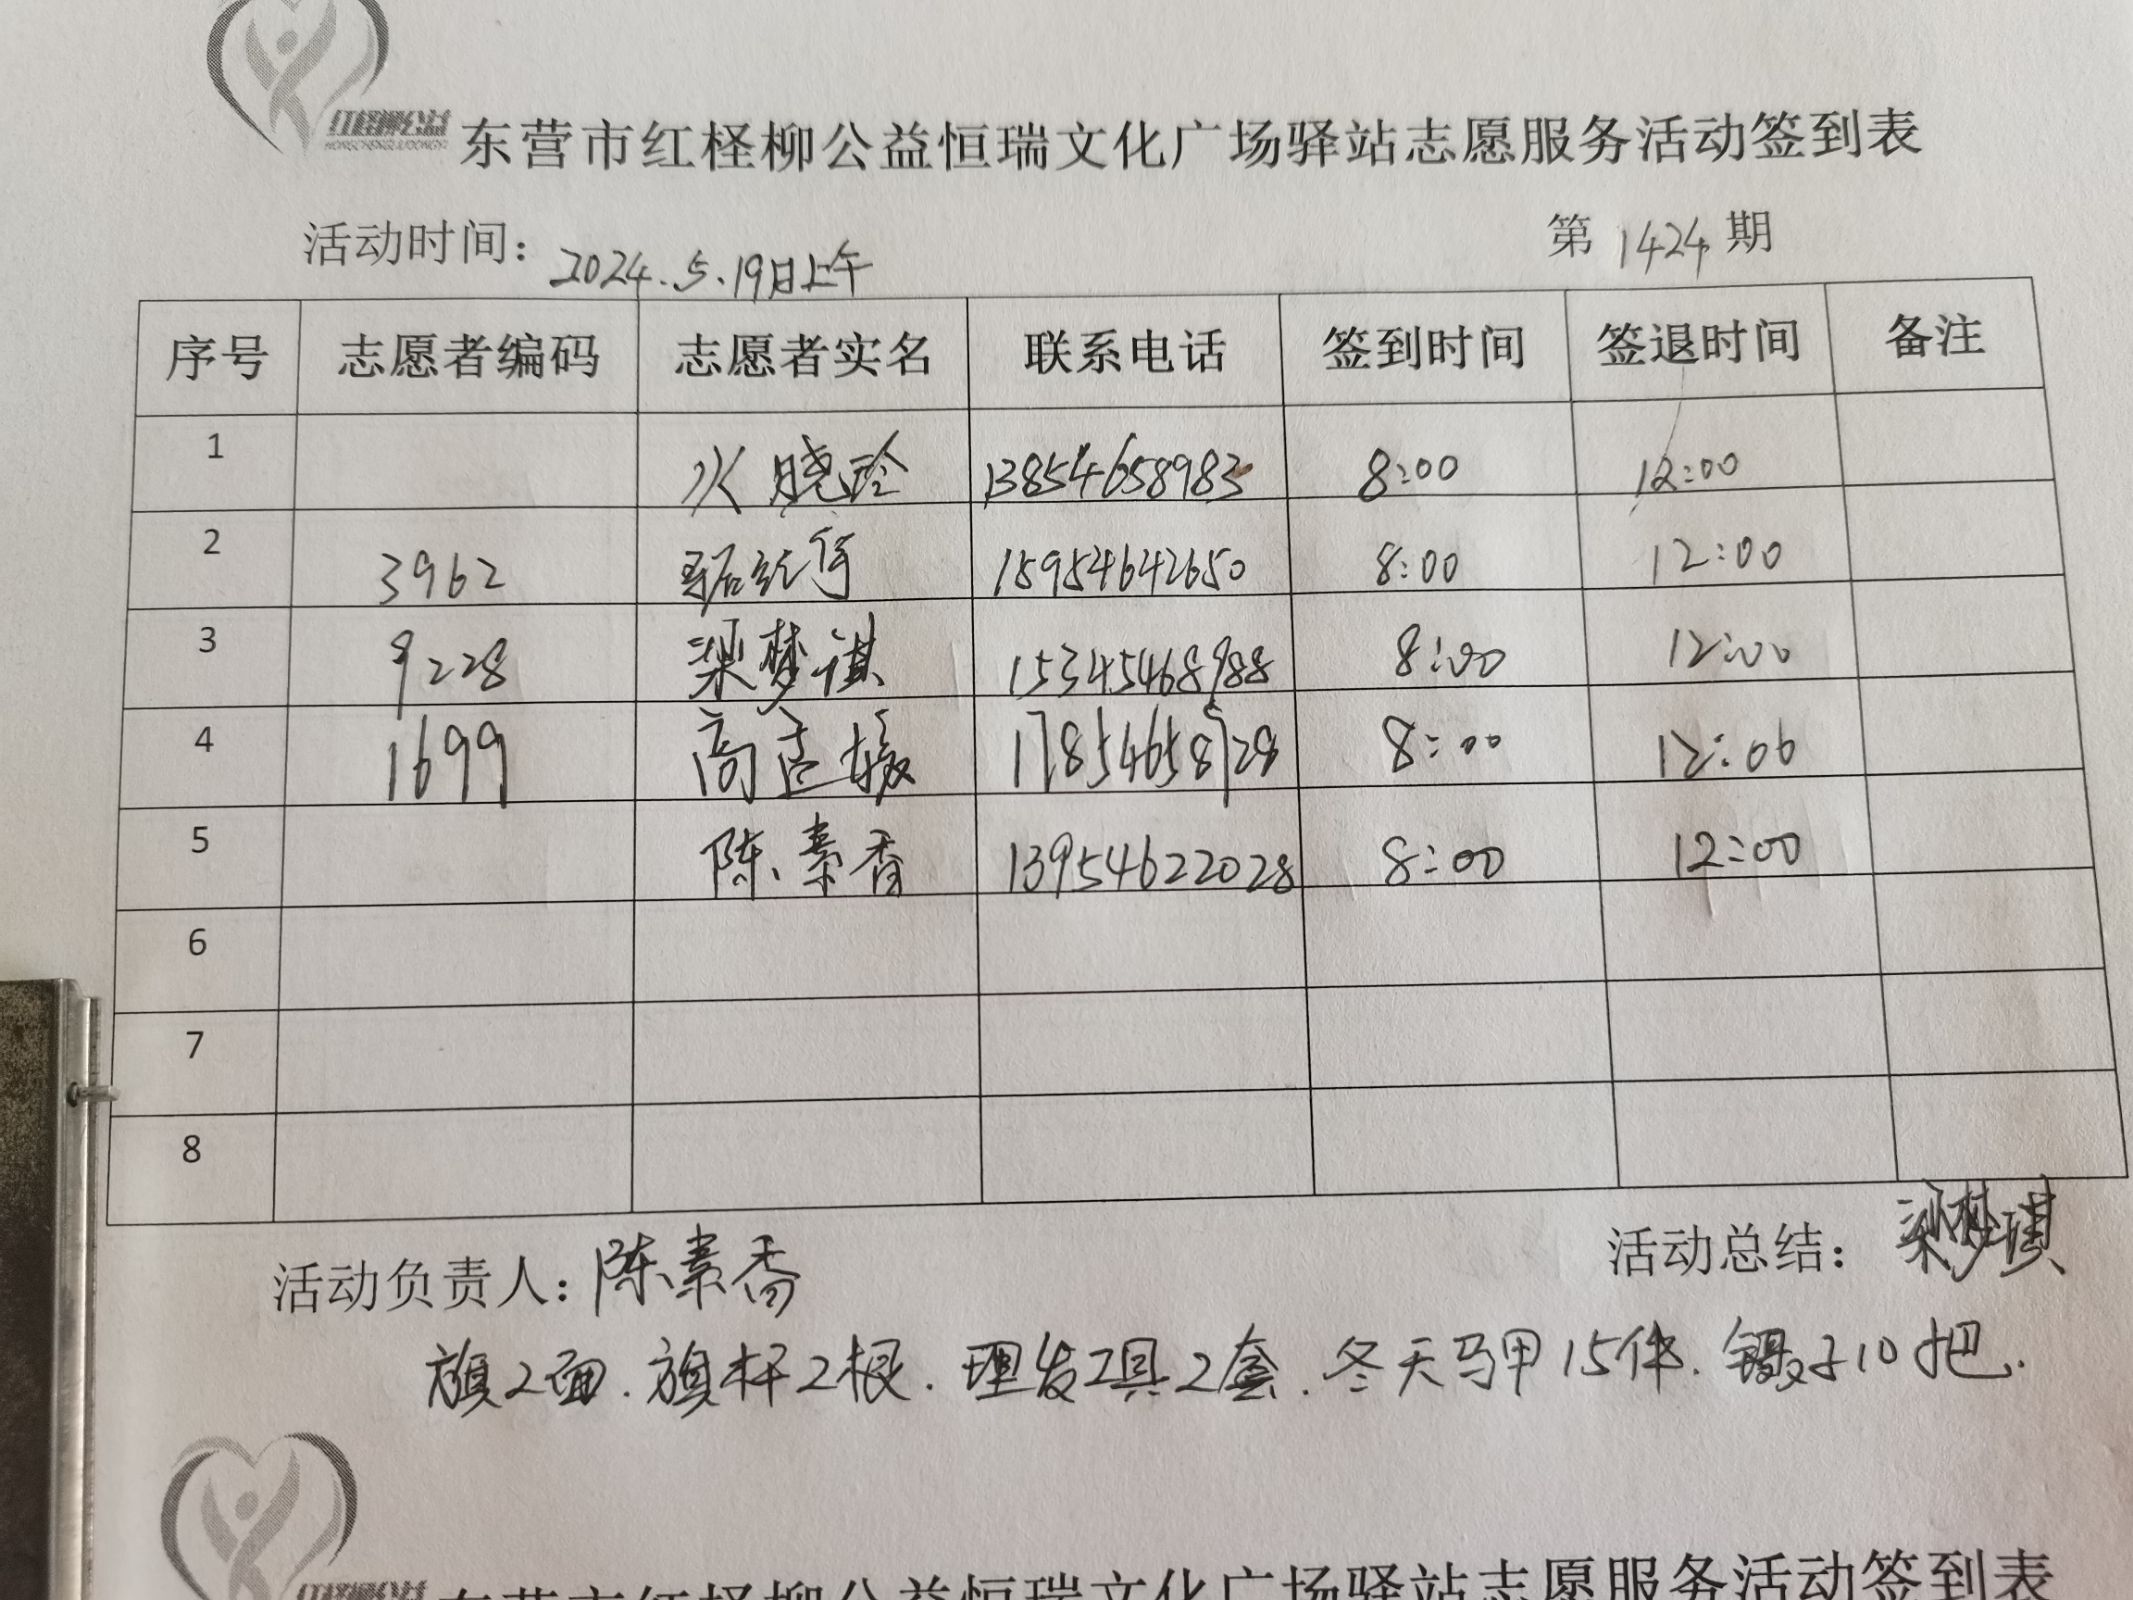 红柽柳公益
东营市红柽柳公益恒瑞文化广场驿站志愿服务活动签到表
活动时间：2024.5.19日上午 第1424期
序号 志愿者编码 志愿者实名 联系电话 签到时间 签退时间 备注
1 晓玲 13854658983 8:00 12:00
2 3962 15954642650 8:00 12:00
3 9228 梁梦祺 15345468988 8:00 12:00
4 1699 高孟媛 17854658728 8:00 12:00
5 陈素香 13954622028 8:00 12:00
6
7
8
活动负责人：陈素香 活动总结：梁梦琪
旗2面.旗杆2根.理发工具2套.冬天马甲15件.镊子10把.
红柽柳公益
东营市红柽柳公益恒瑞文化广场驿站志愿服务活动签到表